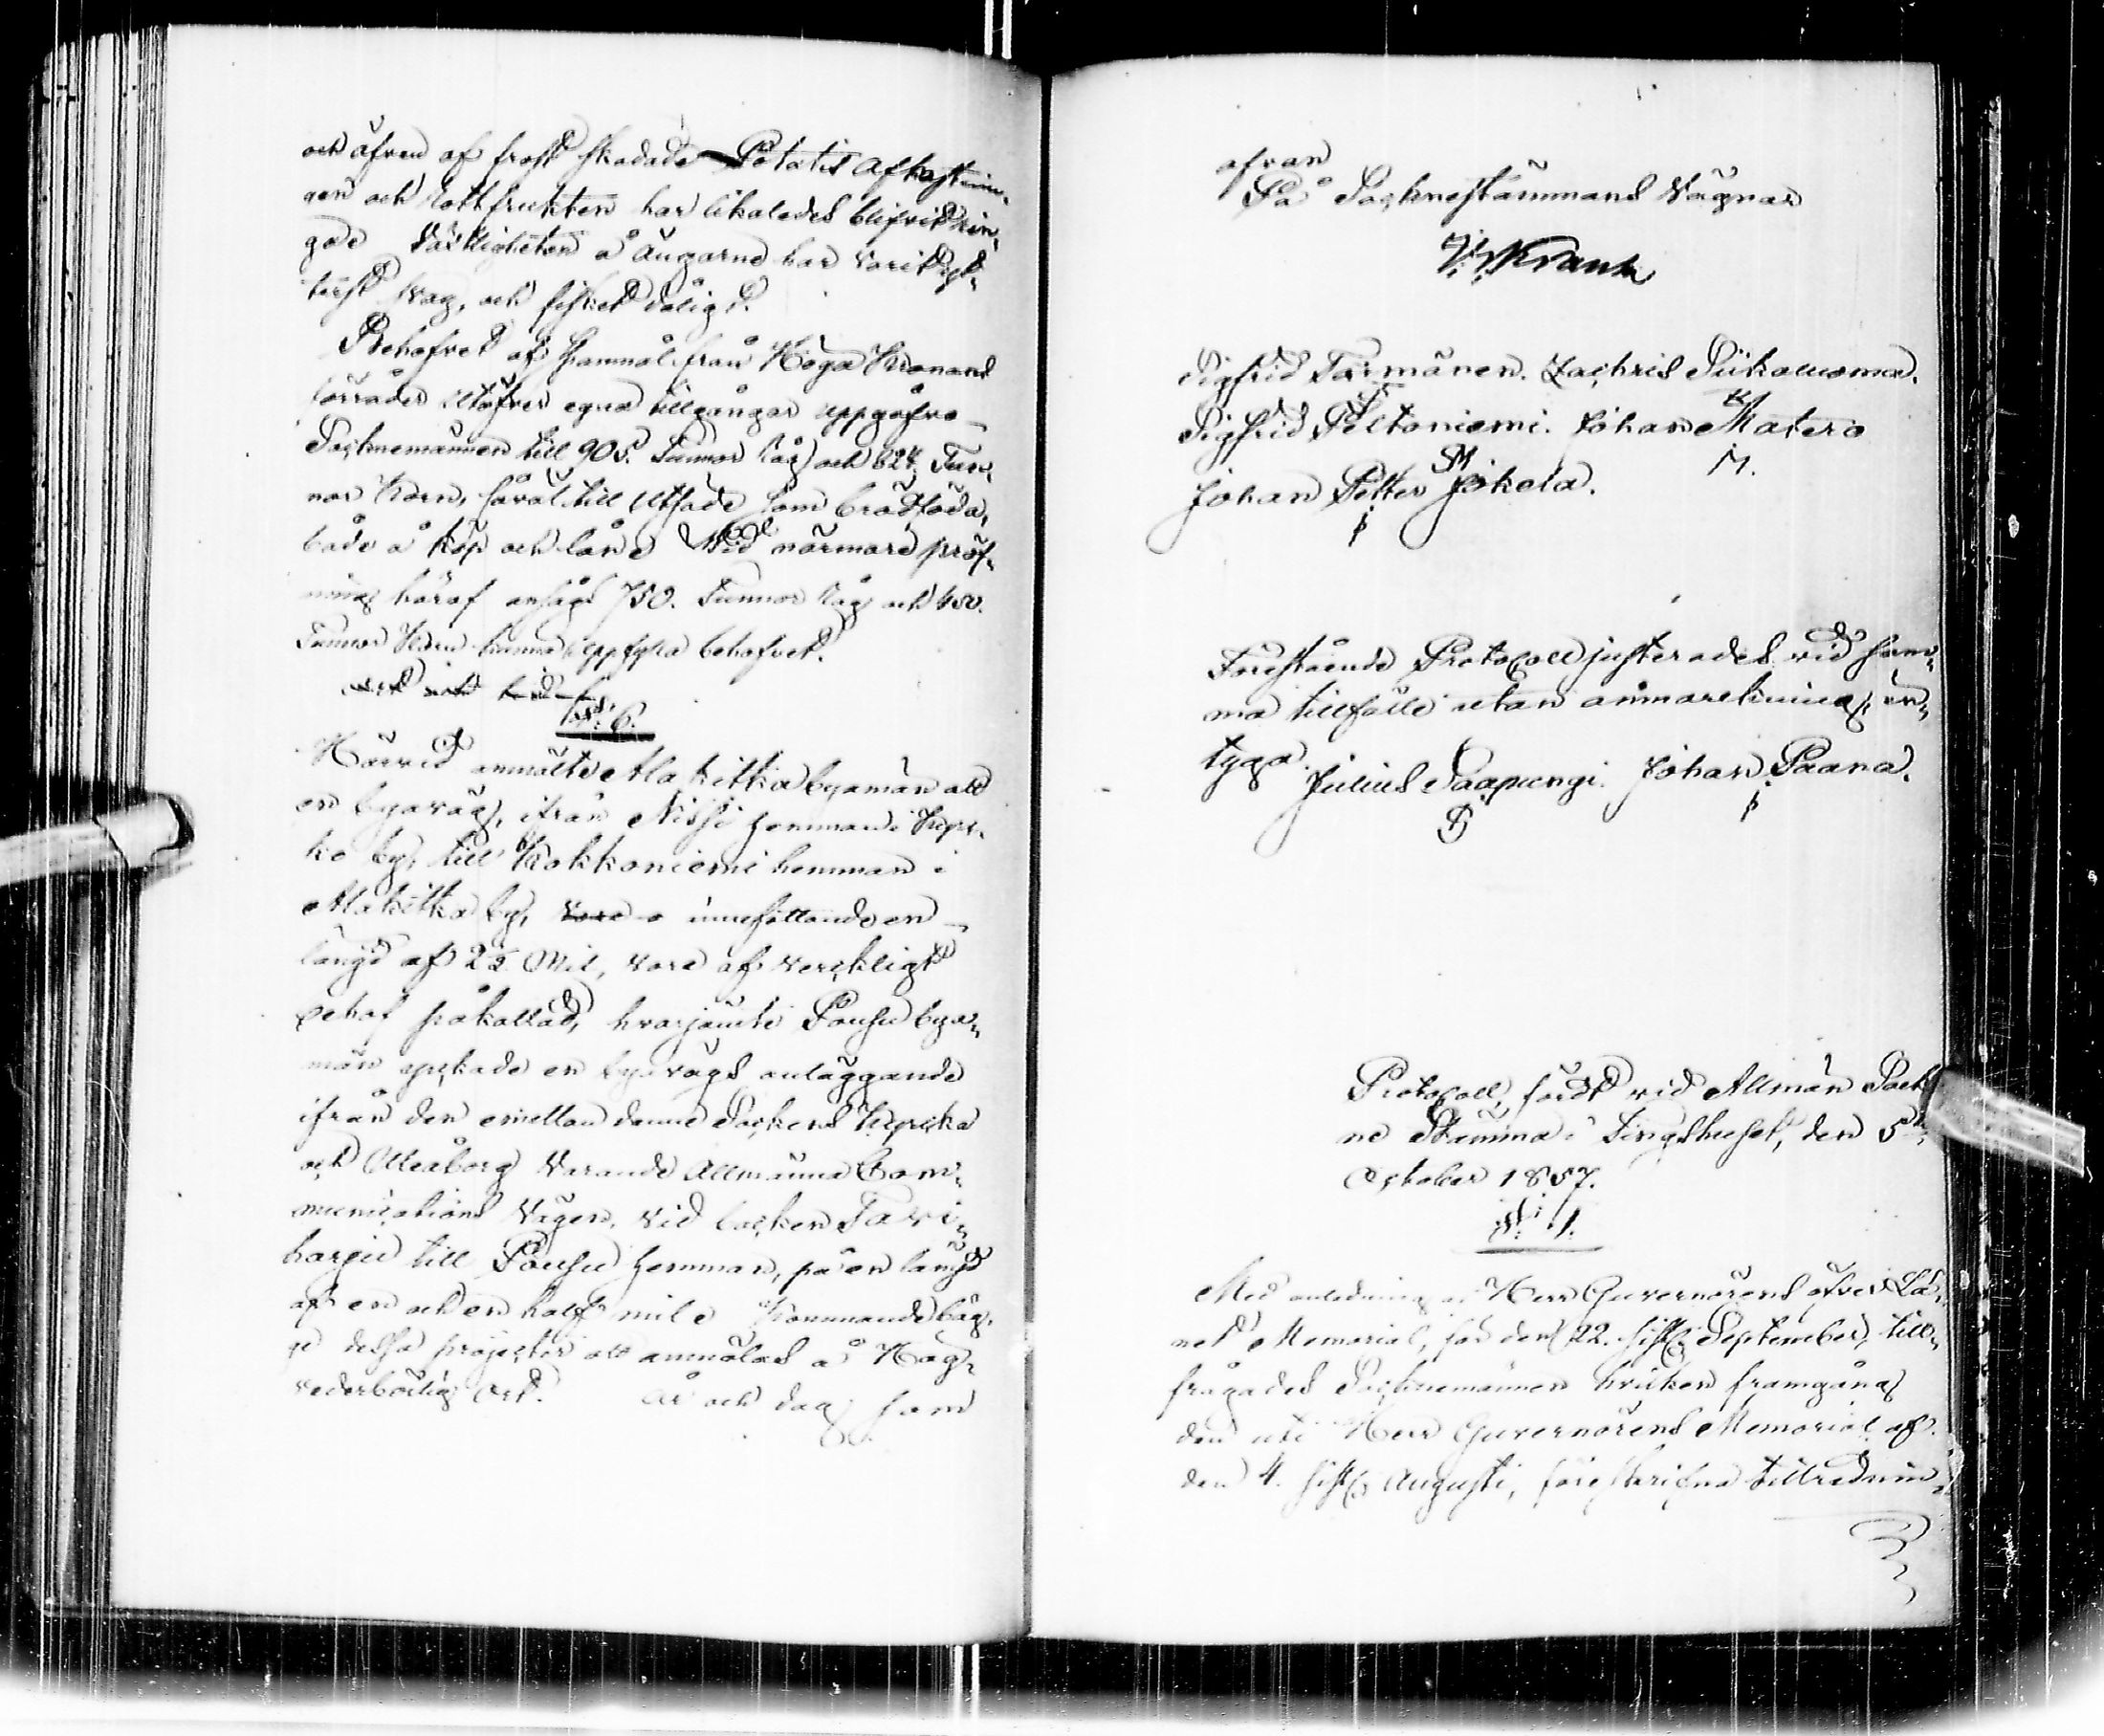 och äfven af frost skadade Potatis afkastnin-
gen och Rottfrukten har likaledes blifvit rin-
ga Växtligheten å ängarne har varit yt-
terst svag, och fisket dåligt.
Behofvet af Spanmål från Höga Kronans
förråder utöfver egna tillgångar uppgåfvo
Socknemännen till 905. Tunnor Råg och 624. Tun-
nor Korn, såväl till utsäde som brödföda,
både å köp och lån. Vid närmare pröf-
ning häraf ansågs 750. Tunnor Råg och 450.
Tunnor Korn kunna uppfylla behofvet.
§. 6.
Härvid anmälte Alakitka byamän att
en byaväg, ifrån Nissi hemman i Kepos-
ko by, till Kokkoniemi hemman i
Alakitka by, vore innehållande en
längd af 2 1/2 Mil, vore af verkligt
behof påkallad, hvarjämte Pousu bya-
män yrkade en byavägs anläggande
ifrån den emellan denne Sockens Kyrka
och Uleåborg varande allmänna Com-
munications vägen, vid backen Tavi-
harju till Pousu hemman, på en längd
af en och en half mil. Kommande båg-
ge dessa projecter att anmälas å Hög-
vederbörlig ort. År och dag som
ofvan
På Sockne stämmans vägnar
Sigfrid Törmänen. Zachris Piikaluoma.
Sigfrid Peltoniemi. Johan Matero
SM M.
Johan Petter Jokela.
Förestående Protocoll justerades vid sam-
ma tillfälle utan anmärkning, in-
tyga.
Julius Saapungi. Johan Paana.
Protocoll, fördt vid Allmän Sock-
ne Stämma i Tingshuset, den 5te
October 1857.
§. 1.
Med anledning af Herr Guvernörens öfver Lä-
net Memorial, för den 22. sistl. September, till-
frågades Socknemännen hvilken framgång
den uti Herr Guvernörens Memorial af
den 4. sistl. Augusti, föreskrifna tillrednin-